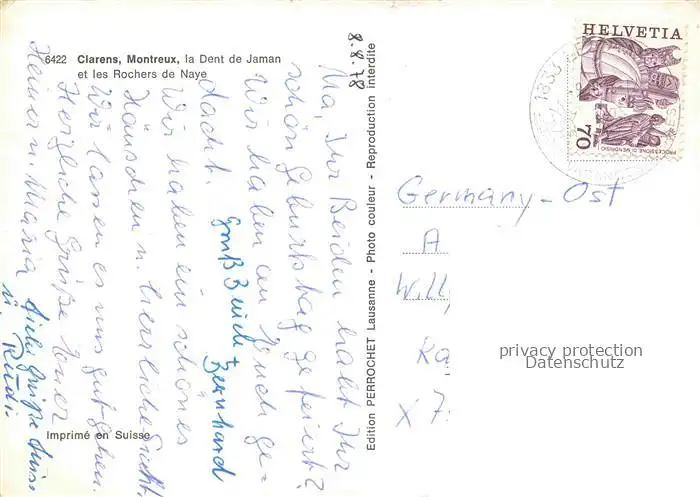 6422 Clarens, Montreux, la Dent de Jaman
et les Rochers de Naye
8.8.78
Na, Ihr Beiden habt Ihr
schön Geburtstag gefeiert?
Wir haben an Euch ge-
dacht.
Wir haben ein schönes
Häuschen u. herrliche Sicht.
Wir lassen es uns gut gehen.
Herzliche Grüße Euer
Heiner u. Maria
Gruß +
Bernhard
viele Grüße
u. Rudi
Imprimé en Suisse
Edition PERROCHET Lausanne - Photo couleur - Reproduction interdite
HELVETIA
PROCESSIONE DI MENDRISIO
70
Germany-Ost
A
Willy
Ra
X 7
privacy protection
Datenschutz